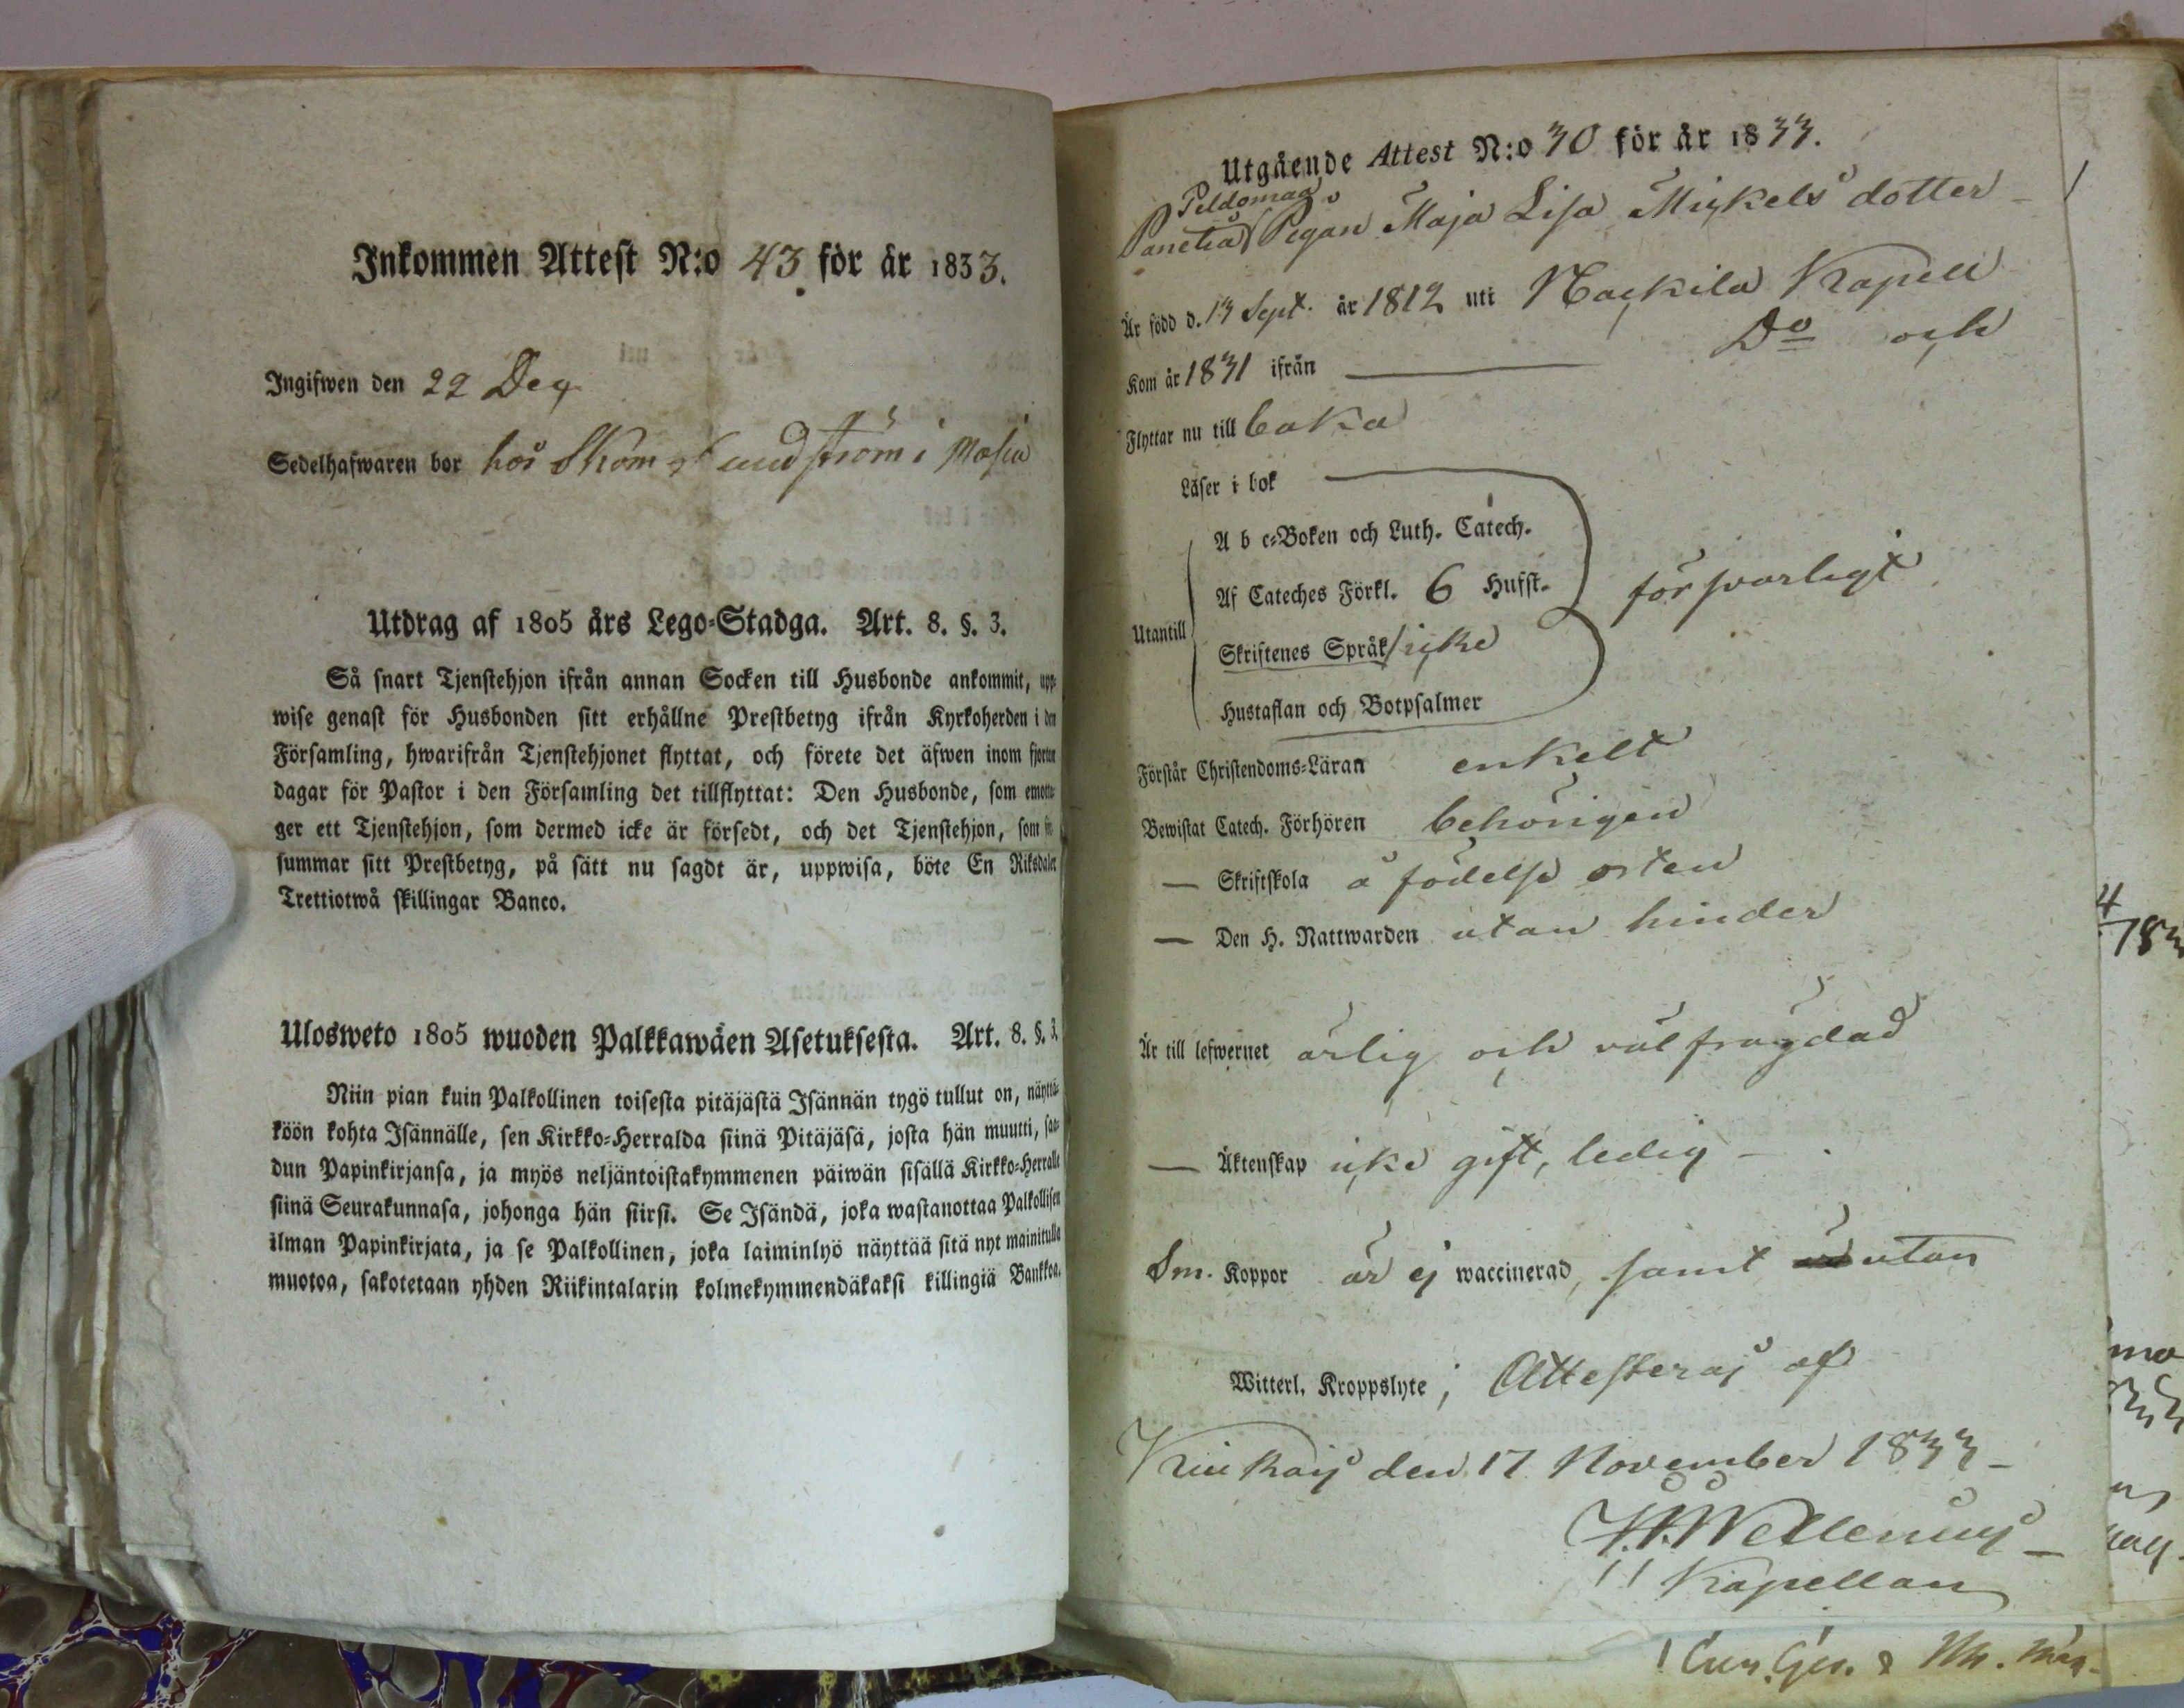 Inkommen Attest N:o 43 för år 1833.
Ingifwen den 22 Dec
Sedelhafwaren bor hos Skom Sundström i Masia
Utdrag af 1805 års Lego-Stadga. Art. 8. §. 3.
Så snart Tjenstehjon ifrån annan Socken till Husbonde ankommit, upp-
wise genast för Husbonden sitt erhållne Prestbetyg ifrån Kyrkoherden i den
Församling, hwarifrån Tjenstehjonet flyttat, och förete det äfwen inom fjorton
dagar för Pastor i den Församling det tillflyttat: Den Husbonde, som emotta-
ger ett Tjenstehjon, som dermed icke är försedt, och det Tjenstehjon, som för-
summar sitt Prestbetyg, på sätt nu sagdt är, uppwisa, böte En Riksdaler
Trettiotwå skillingar Banco.
Ulosweto 1805 wuoden Palkkawäen Asetuksesta. Art. 8. §. 3.
Niin pian kuin Palkollinen toisesta pitäjästä Isännän tygö tullut on, näyttä-
köön kohta Isännälle, sen Kirkko-Herralda siinä Pitäjäsä, josta hän muutti, saa-
dun Papinkirjansa, ja myös neljäntoistakymmenen päiwän sisällä Kirkko-Herralle
siinä Seurakunnasa, johonga hän siirsi. Se Isändä, joka wastanottaa Palkollisen
ilman Papinkirjata, ja se Palkollinen, joka laiminlyö näyttää sitä nyt mainitulla
muotoa, sakotetaan yhden Riikintalarin kolmekymmendäkaksi killingiä Bankkoa.
Utgående Attest N:o 30 för år 1833.
Peldomaa
Panelia Pigan Maja Lisa Mickels dotter
Är född d. 13 Sept. år 1812 uti Nackila Kapell
Kom år 1831 ifrån — Do och
Flyttar nu till baka
Läser i bok
A b c-Boken och Luth. Catech.
Af Cateches Förkl. 6 Hufst. försvarligt
Utantill
Skriftenes Språk icke
Hustaflan och Botpsalmer
Förstår Christendoms-Läran enkelt
Bewistat Catech. Förhören behörigen
— Skriftskola å födelse orten
— Den H. Nattwarden utan hinder
Är till lefwernet ärlig och väl frägdad
— Äktenskap icke gift, ledig —
Sm. Koppor är ej waccinerad, samt utan
Witterl. Kroppslyte; Attesteras af
Kiukais den 17 November 1833 —
Kapellan